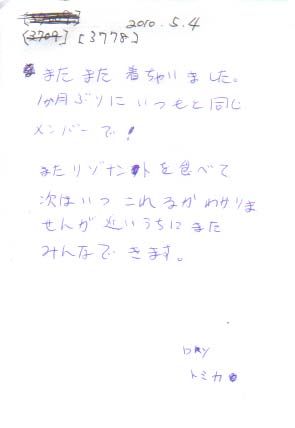 2010.5.4
[3778]
またまた 着ちゃいました。
1か月ぶりに いつもと同じ
メンバーで!
またリゾナントを食べて
次はいつ これるか わかりま
せんが 近いうちに また
みんなで きます。
トミカ